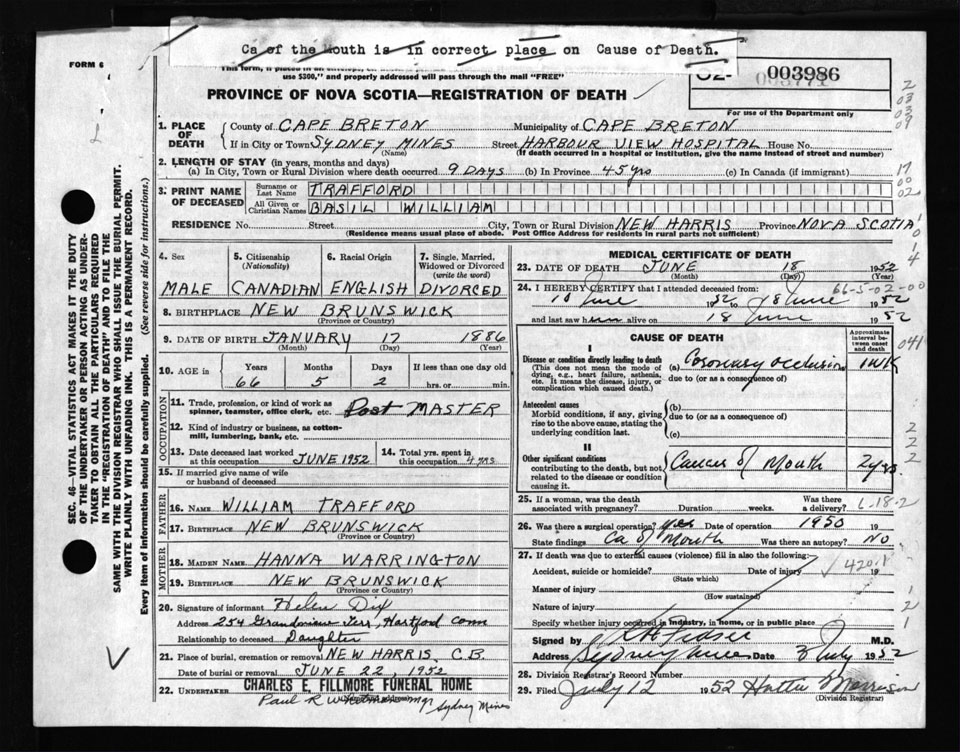 Ca of the Mouth is in correct place on Cause of Death.
FORM 6
use $300," and properly addressed will pass through the mail "FREE"
003986
PROVINCE OF NOVA SCOTIA—REGISTRATION OF DEATH
For use of the Department only
1. PLACE OF DEATH
County of CAPE BRETON Municipality of CAPE BRETON
If in City or Town SYDNEY MINES Street HARBOUR VIEW HOSPITAL House No.
(Name) (If death occurred in a hospital or institution, give the name instead of street and number)
2. LENGTH OF STAY (in years, months and days)
(a) In City, Town or Rural Division where death occurred 9 DAYS (b) In Province 45 yrs (c) In Canada (if immigrant)
3. PRINT NAME OF DECEASED
Surname or Last Name TRAFFORD
All Given or Christian Names BASIL WILLIAM
RESIDENCE No. Street City, Town or Rural Division NEW HARRIS Province NOVA SCOTIA
(Residence means usual place of abode. Post Office Address for residents in rural parts not sufficient)
4. Sex MALE
5. Citizenship (Nationality) CANADIAN
6. Racial Origin ENGLISH
7. Single, Married, Widowed or Divorced (write the word) DIVORCED
8. BIRTHPLACE NEW BRUNSWICK
(Province or Country)
9. DATE OF BIRTH JANUARY 17 1886
(Month) (Day) (Year)
10. AGE IN Years 66 Months 5 Days 2 If less than one day old hrs. or min.
OCCUPATION
11. Trade, profession, or kind of work as spinner, teamster, office clerk, etc. Post MASTER
12. Kind of industry or business, as cotton-mill, lumbering, bank, etc.
13. Date deceased last worked at this occupation JUNE 1952
14. Total yrs. spent in this occupation 4 yrs
15. If married give name of wife or husband of deceased
FATHER
16. Name WILLIAM TRAFFORD
17. Birthplace NEW BRUNSWICK
(Province or Country)
MOTHER
18. MAIDEN NAME HANNA WARRINGTON
19. BIRTHPLACE NEW BRUNSWICK
(Province or Country)
20. Signature of informant Helen Dix
Address 254 Grandview Terr, Hartford Conn
Relationship to deceased Daughter
21. Place of burial, cremation or removal NEW HARRIS C.B.
Date of burial or removal JUNE 22, 1952
22. UNDERTAKER CHARLES E. FILLMORE FUNERAL HOME
Paul R
Sydney Mines
MEDICAL CERTIFICATE OF DEATH
23. DATE OF DEATH JUNE 18 1952
(Month) (Day) (Year)
24. I HEREBY CERTIFY that I attended deceased from: 66-5-02-00
10 June 1952 to 18 June 1952
and last saw him alive on 18 June 1952
CAUSE OF DEATH
Approximate interval between onset and death
I
Disease or condition directly leading to death (a) Coronary occlusion 1 WK
(This does not mean the mode of dying, e.g., heart failure, asthenia, etc. It means the disease, injury, or complication which caused death.)
due to (or as a consequence of)
Antecedent causes
Morbid conditions, if any, giving rise to the above cause, stating the underlying condition last.
(b)
due to (or as a consequence of)
(c)
II
Other significant conditions contributing to the death, but not related to the disease or condition causing it. Cancer of Mouth 2 yrs
25. If a woman, was the death associated with pregnancy? Duration weeks. Was there a delivery? 6-18-2
26. Was there a surgical operation? yes Date of operation 1950 19
State findings Ca of Mouth Was there an autopsy? NO
27. If death was due to external causes (violence) fill in also the following:
Accident, suicide or homicide? Date of injury 19 420.1
(State which)
Manner of injury
(How sustained)
Nature of injury
Specify whether injury occurred in industry, in home, or in public place
Signed by M.D.
Address Sydney Mines Date 3 July 1952
28. Division Registrar's Record Number
29. Filed July 12 1952 Hattie Morrison
(Division Registrar)
SEC. 46—VITAL STATISTICS ACT MAKES IT THE DUTY
OF THE UNDERTAKER OR PERSON ACTING AS UNDER-
TAKER TO OBTAIN ALL THE PARTICULARS REQUIRED
IN THE "REGISTRATION OF DEATH" AND TO FILE THE
SAME WITH THE DIVISION REGISTRAR WHO SHALL ISSUE THE BURIAL PERMIT.
WRITE PLAINLY WITH UNFADING INK. THIS IS A PERMANENT RECORD.
Every item of information should be carefully supplied. (See reverse side for instructions.)